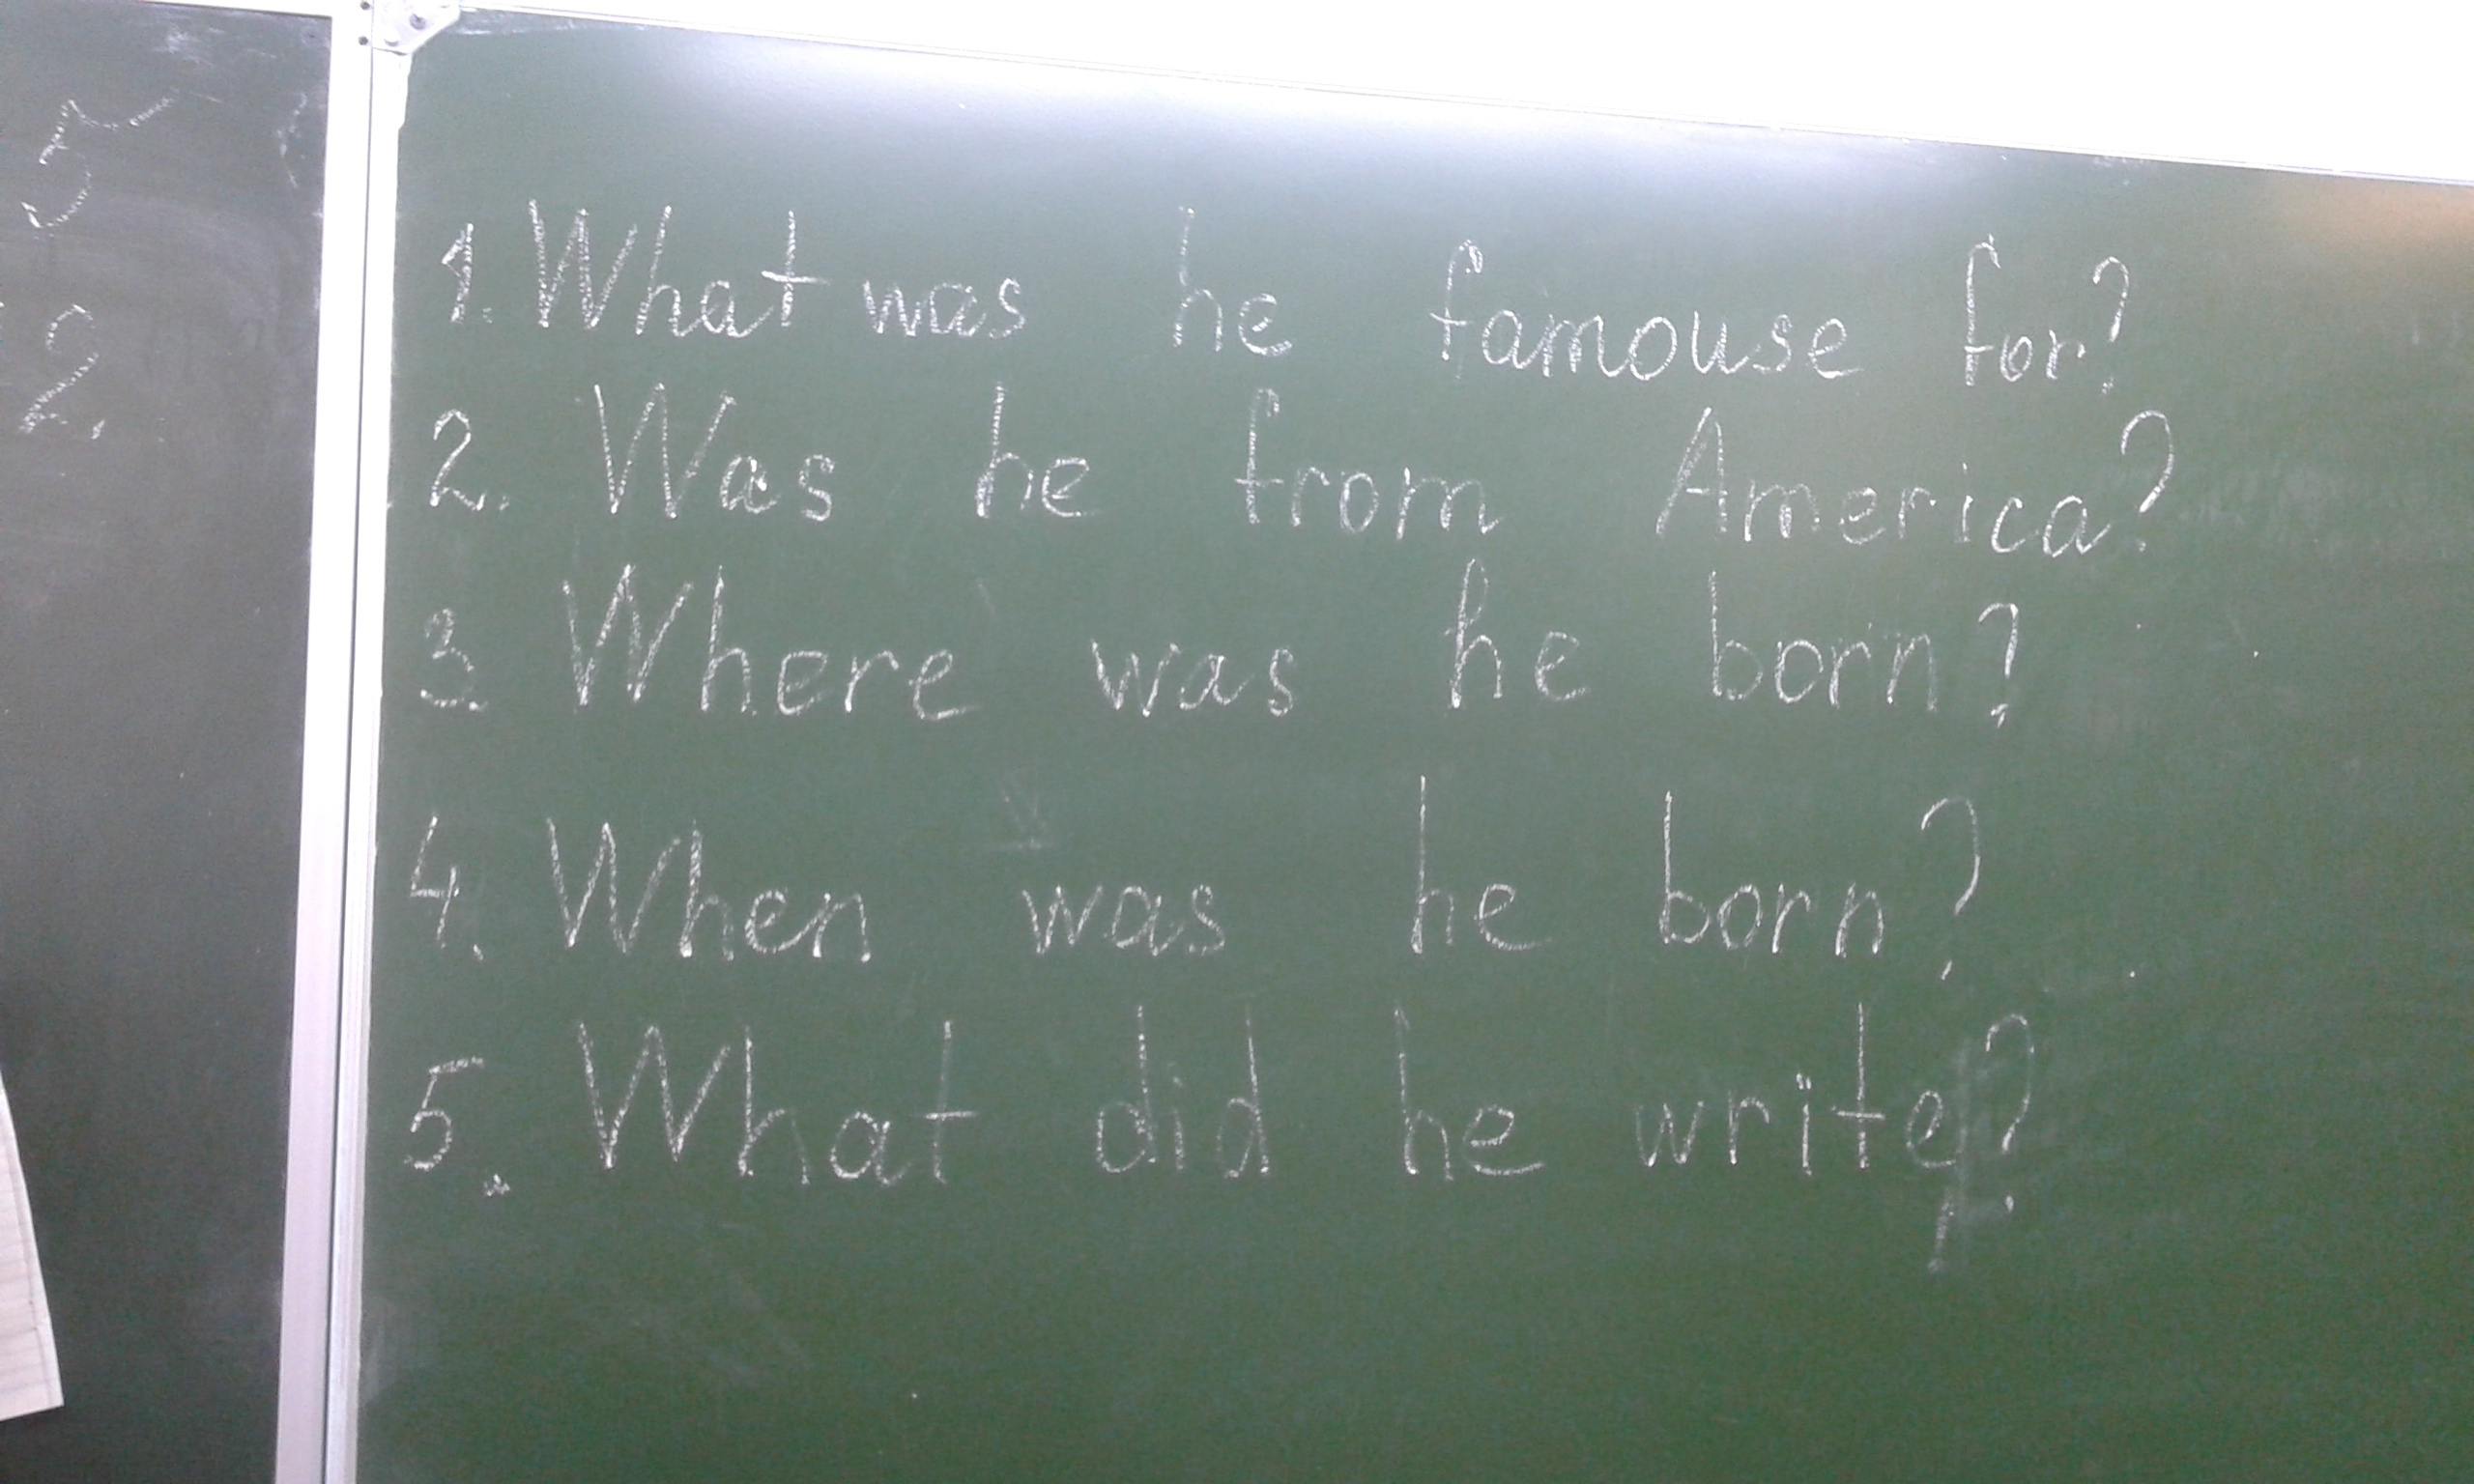 5
2.
1. What was he famouse for?
2. Was he from America?
3. Where was he born?
4. When was he born?
5. What did he write?